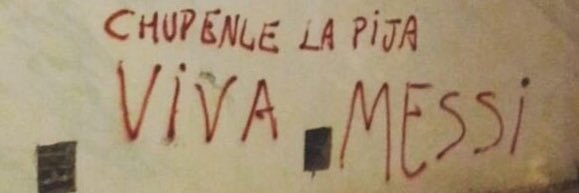 CHUPENLE LA PiJA
ViVA MESSi